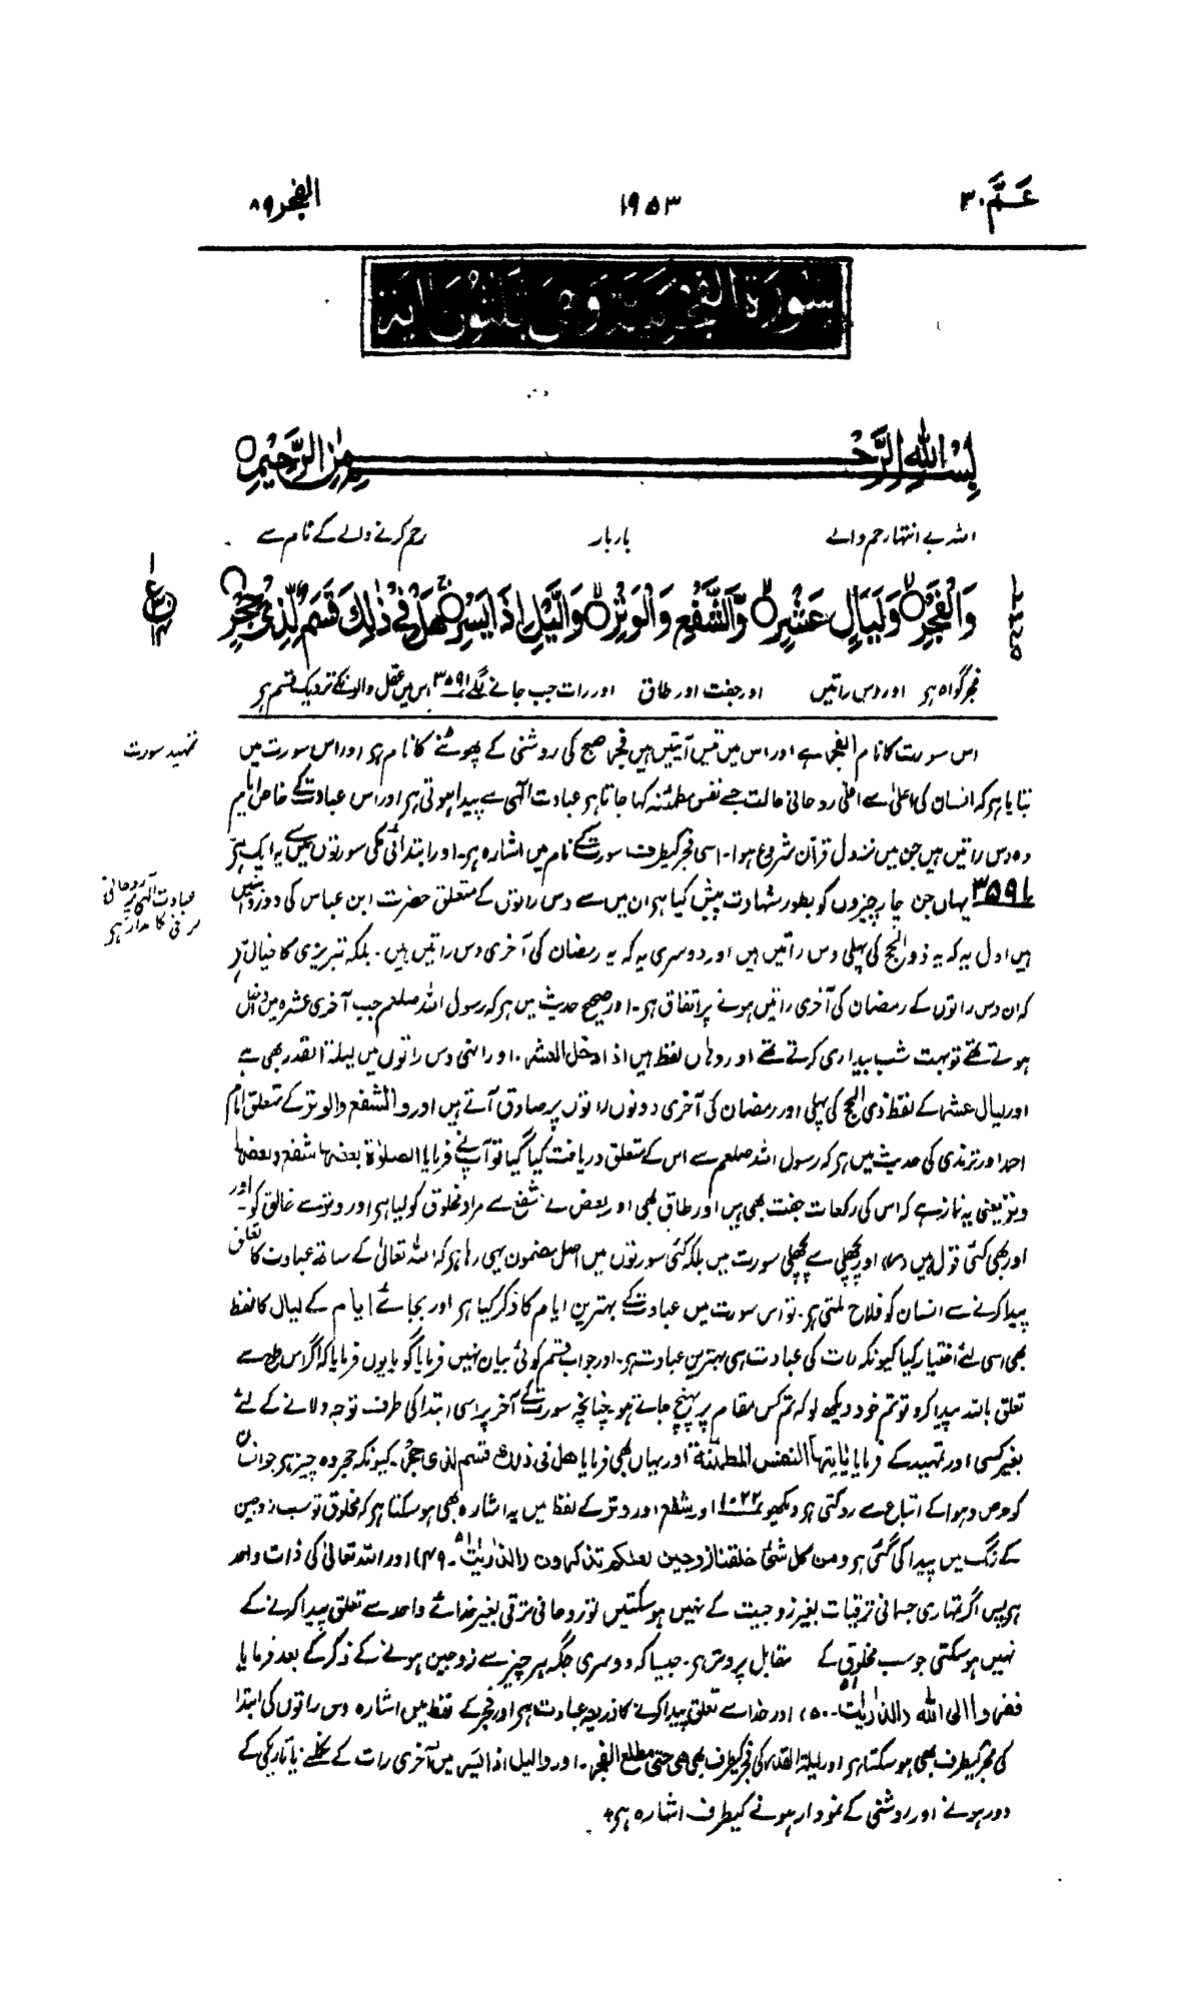 عَمَّ ۳۰
۱۹۵۳
الفجر ۸۹
سورة الفجر مكية وهي ثلثون اية
بِسْمِ اللهِ الرَّحْمٰنِ الرَّحِيْمِ
اللہ بے انتہا رحم والے بار بار رحم کرنے والے کے نام سے
وَالْفَجْرِ وَلَيَالٍ عَشْرٍ وَّالشَّفْعِ وَالْوَتْرِ وَالَّيْلِ اِذَا يَسْرِ هَلْ فِيْ ذٰلِكَ قَسَمٌ لِّذِيْ حِجْرٍ
فجر گواہ ہر اور دس راتیں اور جفت اور طاق اور رات جب جانے لگے ۳۵۹۱ اس میں عقل والونکے نزدیک قسم ہر
تمہید سورت
اس سورت کا نام الفجر ہے اور اس میں تیس آیتیں ہیں فجر صبح کی روشنی کے پھوٹنے کا نام ہر اور اس سورت میں
بتایا ہر کہ انسان کی اعلیٰ سے اعلیٰ روحانی حالت جسے نفس مطمئنہ کہا جاتا ہر عبادت الٰہی سے پیدا ہوتی ہر اور اس عبادت کے خاص ایام
وہ دس راتیں ہیں جن میں نزول قرآن شروع ہوا۔ اسی فجر کیطرف سورت کے نام میں اشارہ ہر۔ اور ابتدائی مکی سورتوں میں سے یہ ایک ہر
عبادت الٰہی پر روحانی ترقی کا مدار ہر
۳۵۹۱ یہاں جن چار چیزوں کو بطور شہادت پیش کیا ہر ان میں سے دس راتوں کے متعلق حضرت ابن عباس کی دو روایتیں
ہیں اول یہ کہ یہ ذوالحج کی پہلی دس راتیں ہیں اور دوسری یہ کہ یہ رمضان کی آخری دس راتیں ہیں۔ بلکہ تبریزی کا خیال ہر
کہ ان دس راتوں کے رمضان کی آخری راتیں ہونے پر اتفاق ہر۔ اور صحیح حدیث میں ہر کہ رسول اللہ صلعم جب آخری عشرہ میں داخل
ہوتے تھے تو بہت شب بیداری کرتے تھے اور وہاں لفظ ہیں اذا دخل العشر۔ اور انہی دس راتوں میں لیلۃ القدر بھی ہے
اور لیال عشر کے لفظ ذی الحج کی پہلی اور رمضان کی آخری دونوں راتوں پر صادق آتے ہیں اور والشفع والوتر کے متعلق امام
احمد اور ترمذی کی حدیث میں ہر کہ رسول اللہ صلعم سے اس کے متعلق دریافت کیا گیا تو آپ نے فرمایا الصلوٰۃ بعضہا شفع و بعضہا
وتر یعنی یہ نماز ہے کہ اس کی رکعات جفت بھی ہیں اور طاق بھی اور بعض نے شفع سے مراد مخلوق کو لیا ہر اور وتر سے خالق کو۔ اور
اور بھی کئی قول ہیں (ر) اور پچھلی سے پچھلی سورت میں بلکہ کئی سورتوں میں اصل مضمون یہی رہا ہر کہ اللہ تعالیٰ کے ساتھ عبادت کا تعلق
پیدا کرنے سے انسان کو فلاح ملتی ہر۔ تو اس سورت میں عبادت کے بہترین ایام کا ذکر کیا ہر اور بجائے ایام کے لیال کا لفظ
بھی اسی لئے اختیار کیا کیونکہ رات کی عبادت ہی بہترین عبادت ہر۔ اور جواب قسم کوئی بیان نہیں فرمایا گویا یوں فرمایا کہ اگر اس طرح سے
تعلق باللہ پیدا کرو تو تم خود دیکھ لو کہ تم کس مقام پر پہنچ جاتے ہو چنانچہ سورت کے آخر پر اسی ابتدا کی طرف توجہ دلانے کے لئے
بغیر کسی اور تمہید کے فرمایا یٰایتھا النفس المطمئنۃ اور یہاں بھی فرمایا ھل فی ذلک قسم لذی حجر۔ کیونکہ حجر وہ چیز ہر جو انسان
کو حرص و ہوا کے اتباع سے روکتی ہر دیکھو ۱۰۲۲ اور شفع اور وتر کے لفظ میں یہ اشارہ بھی ہو سکتا ہر کہ مخلوق تو سب زوجین
کے رنگ میں پیدا کی گئی ہر ومن کل شیٔ خلقنا زوجین لعلکم تذکرون (الذٰریٰت ۵۱۔ ۴۹) اور اللہ تعالیٰ کی ذات واحد
ہر پس اگر تمہاری جسمانی ترقیات بغیر زوجیت کے نہیں ہو سکتیں تو روحانی ترقی بغیر خدائے واحد سے تعلق پیدا کرنے کے
نہیں ہو سکتی جو سب مخلوق کے مقابل پر وتر ہر۔ جیسا کہ دوسری جگہ ہر چیز سے زوجین ہونے کے ذکر کے بعد فرمایا
ففروا الی اللہ (الذٰریٰت ۵۱۔ ۵۰) اور خدا سے تعلق پیدا کرنے کا ذریعہ عبادت ہر اور فجر کے لفظ میں اشارہ دس راتوں کی ابتدا
کی فجر کیطرف بھی ہو سکتا ہر اور لیلۃ القدر کی فجر کیطرف بھی ھی حتی مطلع الفجر۔ اور والیل اذا یسر میں آخری رات کے نکلنے یا تاریکی کے
دور ہونے اور روشنی کے نمودار ہونے کیطرف اشارہ ہر